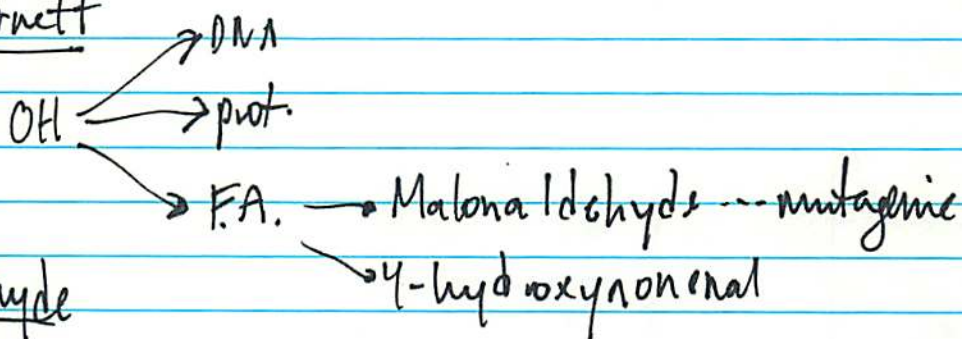 rnett
DNA
OH prot.
F.A. Malonaldehyde --- mutagenic
4-hydroxynonenal
yde